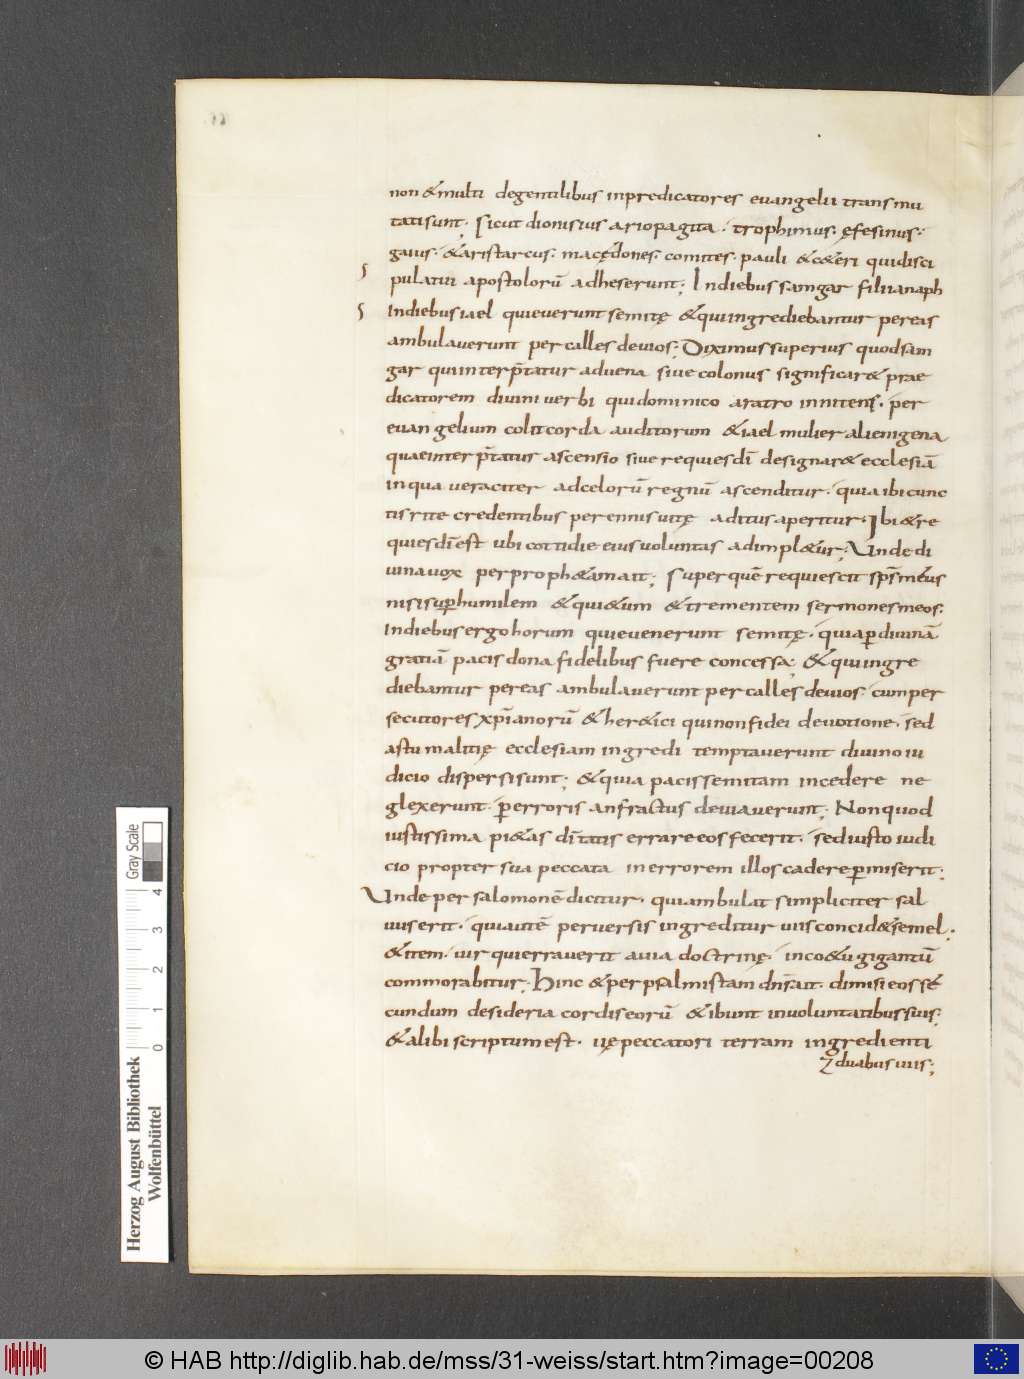 non &multi degentilibus inpredicatores euangelii transmu
tatisunt; Sicut dionisius ariopagita · trophimus · ęfesinus ·
gaius · &aristarcus · macędones · comites · pauli &c&eri quidisci
pulatui apostolorū adheserunt; Indiebus samgar filii anaph
Indiebus iael quieuerunt semitę &quiingrediebantur pereas
ambulauerunt per calles deuios; Diximus superius quodsam
gar quiinterp̄tatur aduena siue colonus significar& prae
dicatorem diuini uerbi quidominico aratro innitens · per
euangelium colit corda auditorum &iael mulier alienigena
quaeinterp̄tatur ascensio siue requies dī designar& ecclesiā
inqua ueraciter adcelorū regnū ascenditur · quia ibi cunc
tis rite credentibus perennis uitę aditus aperitur · Ibi &re
quies dī est ubi cottidie eius uoluntas adimpl&ur; Unde di
uina uox perproph&am ait; Super quē requiescit sp̄s meus
nisi sup̱ humilem &qui&um &trementem sermones meos;
Indiebus ergo horum quieuenerunt semitę · quia p̱ diuinā
gratiā pacis dona fidelibus fuere concessa; &quiingre
diebantur pereas ambulauerunt per calles deuios · cum per
secutores xp̄ianorū &her&ici quinon fidei deuotione · sed
astu malitię ecclesiam ingredi temptauerunt diuino iu
dicio dispersi sunt; &quia pacis semitam incedere ne
glexerunt · p̱ erroris anfractus deuiauerunt; Non quod
iustissima pi&as dītatis errare eos fecerit · sed iusto iudi
cio propter sua peccata in errorem illos cadere p̱miserit;
Unde per salomonē dicitur · qui ambulat simpliciter sal
uus erit · qui autē peruersis ingreditur uiis concid& semel;
&item · uir qui errauerit a uia doctrinę · in co&u gigantū
commorabitur; Hinc &per psalmistam dn̄s ait · dimisi eos sē
cundum desideria cordis eorū &ibunt in uoluntatibus suis;
&alibi scriptum est · uę peccatori terram ingredienti
duabus uiis;
Gray Scale
0 1 2 3 4
Herzog August Bibliothek
Wolfenbüttel
© HAB http://diglib.hab.de/mss/31-weiss/start.htm?image=00208